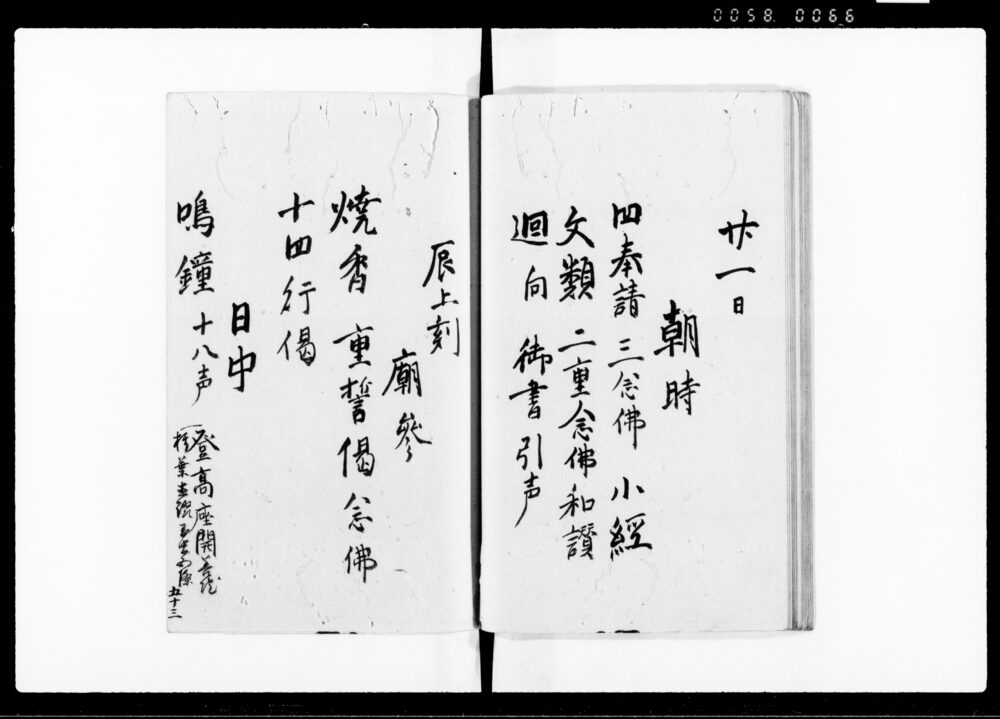 0058. 0066
廿一日
朝時
四奉請 三念佛 小經
文類 二重念佛和讃
迴向 御書引声
辰上刻
廟參
燒香 重誓偈念佛
十四行偈
日中
鳴鐘 十八声
登高座開
五十三